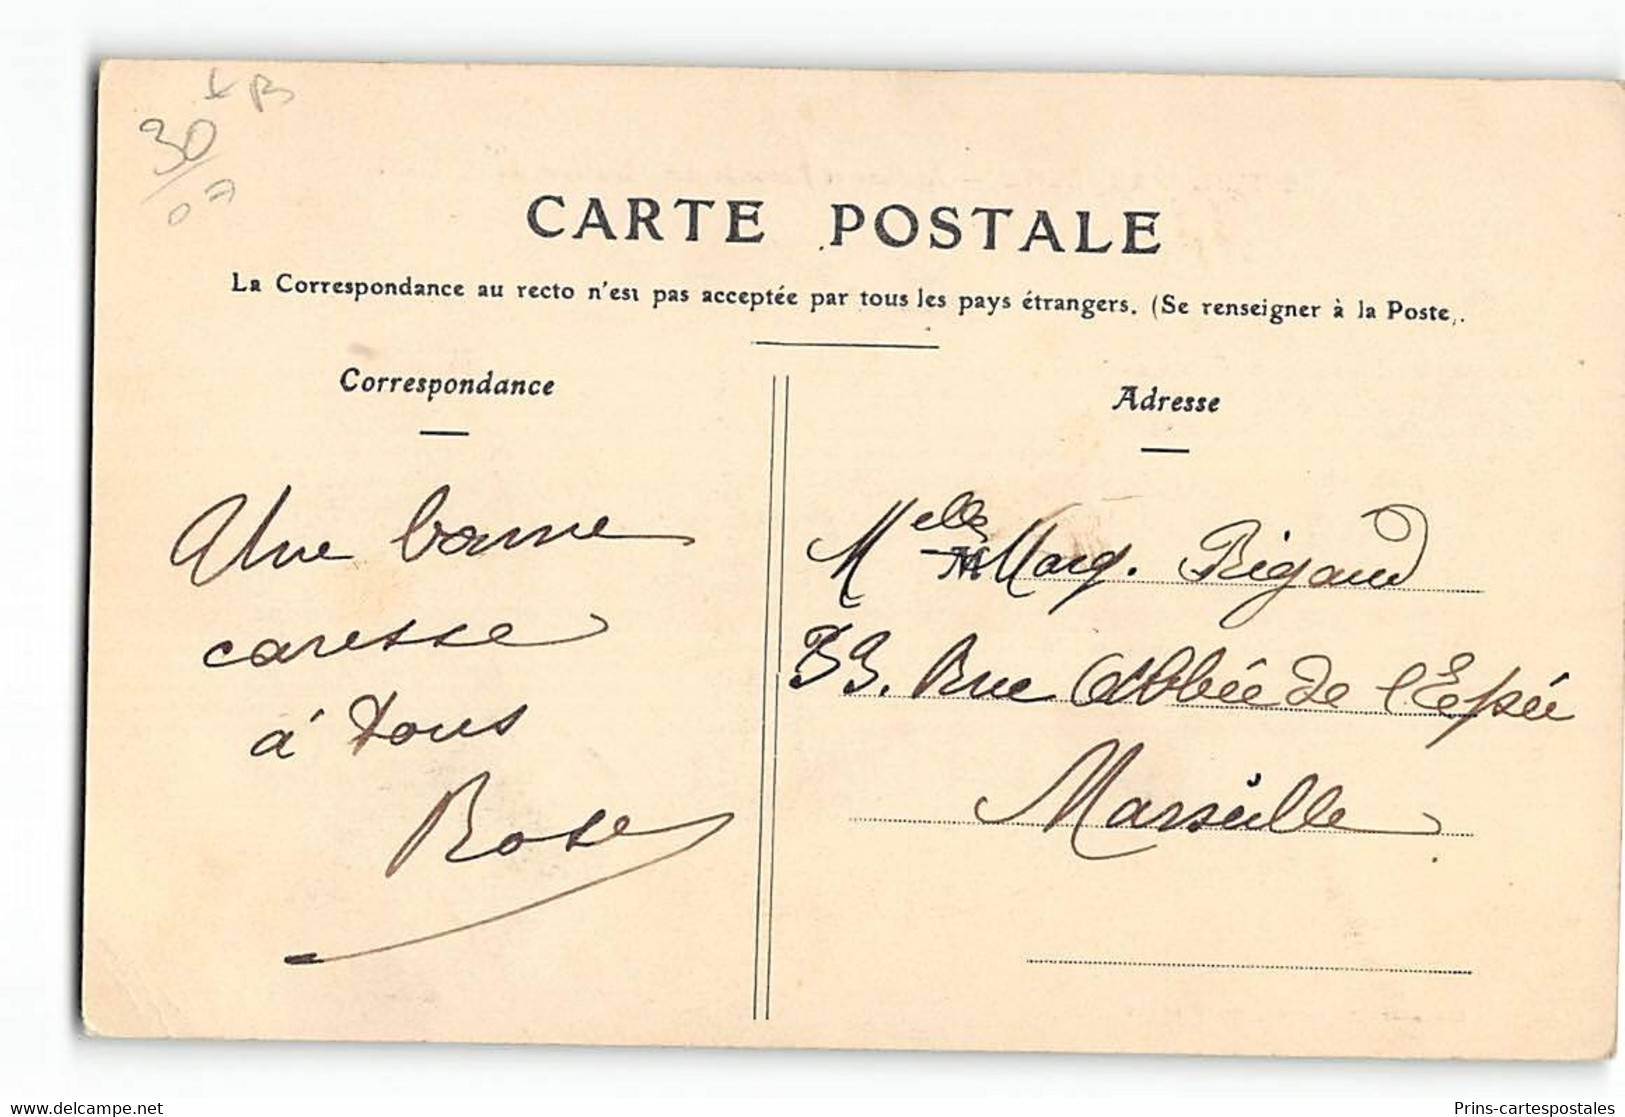 30
07
CARTE POSTALE
La Correspondance au recto n'est pas acceptée par tous les pays étrangers. (Se renseigner à la Poste).
Correspondance
Adresse
Une bonne
caresse
à tous
Rose
Melle Marg. Rigaud
33. Rue Abbée de l'Epée
Marseille
www.delcampe.net
Prins-cartespostales